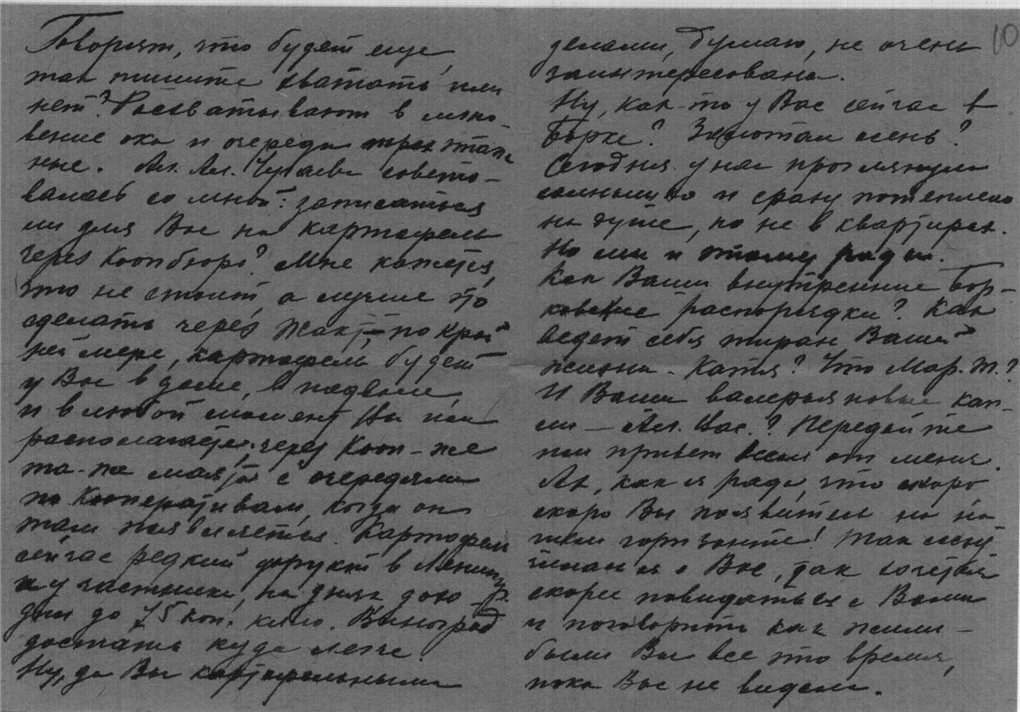 Говорят, что будет еще,
так пишите хватать или
нет? Расхватывают в мгно-
вение ока и очереди трехэтаж-
ные. Ал. Ал. Чугаева совето-
валась со мной: записаться
ли для Вас на картофель
через Коопбюро? Мне кажется,
это не стоит а лучше это
сделать через Жакт, — по край-
ней мере, картофель будет
у Вас в доме, в подвале,
и в любой момент Вы им
располагаете, через Кооп-же
та-же маята с очередями
по Кооперативам, когда он
там появляется. Картофель
сейчас редкий фрукт в Ленингр.
и у частника, на днях дохо-
дил до 75 коп. кило. Виноград
достать куда легче.
Ну, да Вы картофельными
10
делами, думаю, не очень
заинтересованы.
Ну, как-то у Вас сейчас в
Борке? Золотая осень?
Сегодня у нас проглянуло
солнышко и сразу потеплело
на душе, но не в квартирах.
Но мы и этому рады.
Как Ваши внутренние Бор-
ковские распорядки? Как
ведет себя тиран Вашей
жизни — Катя? Что Мар. Т.?
И Ваши валерьяновые кап-
ли — Ал. Вас.? Передайте
им привет всем от меня.
Ах, как я рада, что скоро
скоро Вы появитесь на на-
шем горизонте! Так соску-
чилась я о Вас, так хочется
скорее повидаться с Вами
и поговорить как жили-
были Вы все это время,
пока Вас не видела.